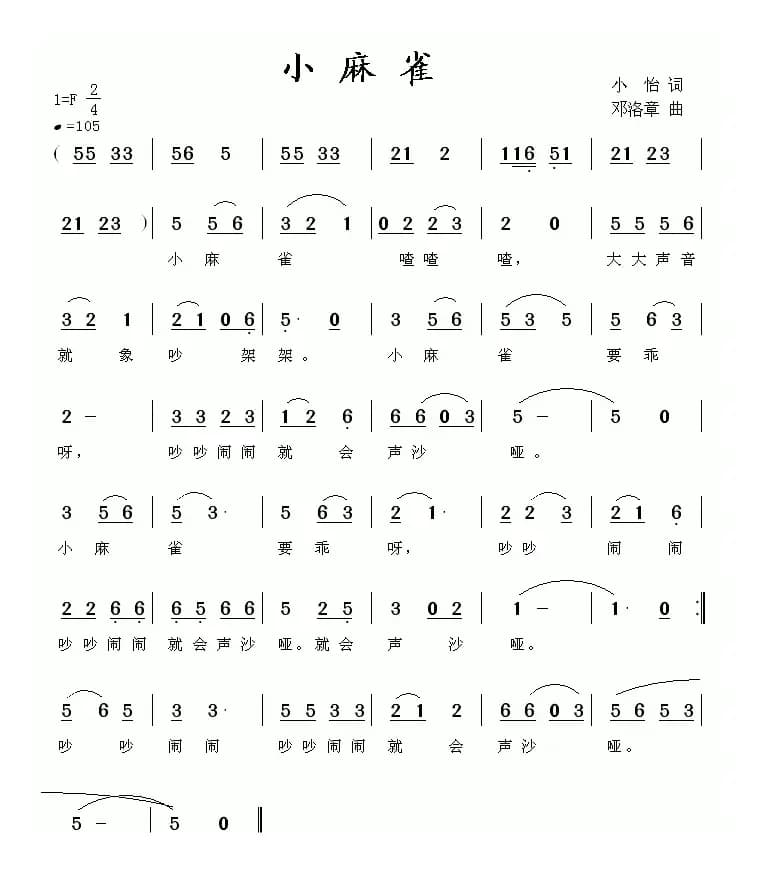 小麻雀
小怡 词
1=F 2/4
邓洛章 曲
♩=105
( 55 33 | 56 5 | 55 33 | 21 2 | 116 51 | 21 23 |
21 23 ) | 5 5 6 | 3 2 1 | 0 2 2 3 | 2 0 | 5 5 5 6 |
小麻 雀 喳喳 喳, 大大声音
3 2 1 | 2 1 0 6 | 5· 0 | 3 5 6 | 5 3 5 | 5 6 3 |
就 象 吵 架 架。 小 麻 雀 要 乖
2 - | 3 3 2 3 | 1 2 6 | 6 6 0 3 | 5 - | 5 0 |
呀, 吵吵闹闹 就 会 声沙 哑。
3 5 6 | 5 3· | 5 6 3 | 2 1· | 2 2 3 | 2 1 6 |
小 麻 雀 要 乖 呀, 吵吵 闹 闹
2 2 6 6 | 6 5 6 6 | 5 2 5 | 3 0 2 | 1 - | 1· 0 :‖
吵吵闹闹 就会声沙 哑。就会 声 沙 哑。
5 6 5 | 3 3· | 5 5 3 3 | 2 1 2 | 6 6 0 3 | 5 6 5 3 |
吵 吵 闹 闹 吵吵闹闹 就 会 声沙 哑。
5 - | 5 0 ‖